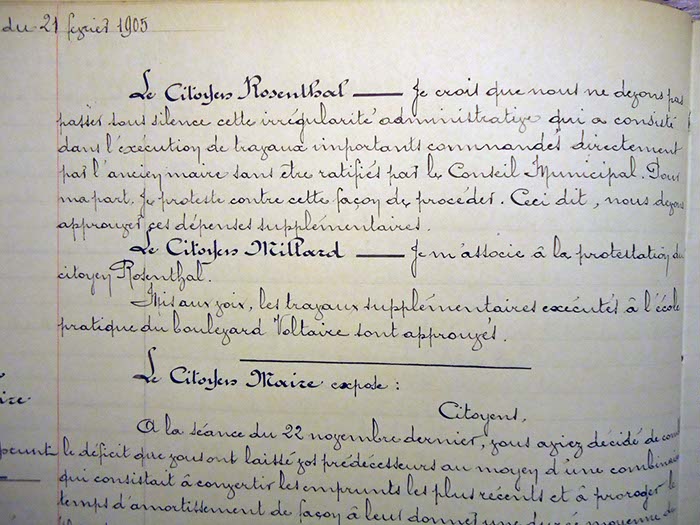 du 21 février 1905
Le Citoyen Rosenthal — Je crois que nous ne devons pas
passer sous silence cette irrégularité administrative qui a consisté
dans l'exécution de travaux importants commandés directement
par l'ancien maire sans être ratifiés par le Conseil Municipal. Pour
ma part, je proteste contre cette façon de procéder. Ceci dit, nous devons
approuver ces dépenses supplémentaires.
Le Citoyen Millard — Je m'associe à la protestation du
citoyen Rosenthal.
Mis aux voix, les travaux supplémentaires exécutés à l'école
pratique du boulevard Voltaire sont approuvés.
Le Citoyen Maire expose :
Citoyens,
A la séance du 22 novembre dernier, vous aviez décidé de
le déficit que vous ont laissé vos prédécesseurs au moyen d'une
qui consistait à convertir les emprunts les plus récents et à proroger le
temps d'amortissement de façon à leur donner une durée moyenne de